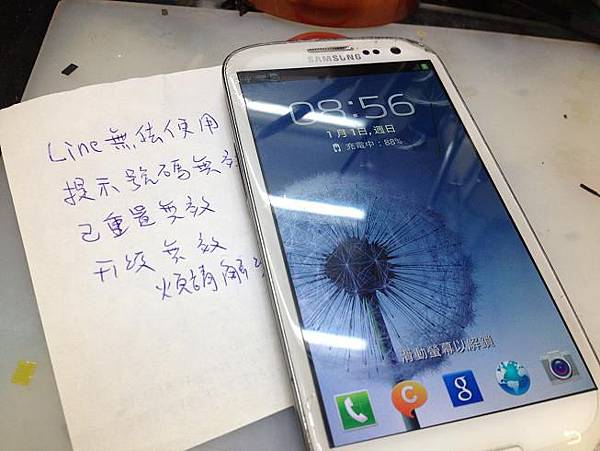 Line無法使用
提示號碼無效
已重置無效
升級無效
煩請解
SAMSUNG
08:56
1月1日, 週日
充電中: 88%
滑動螢幕以解鎖
C
g